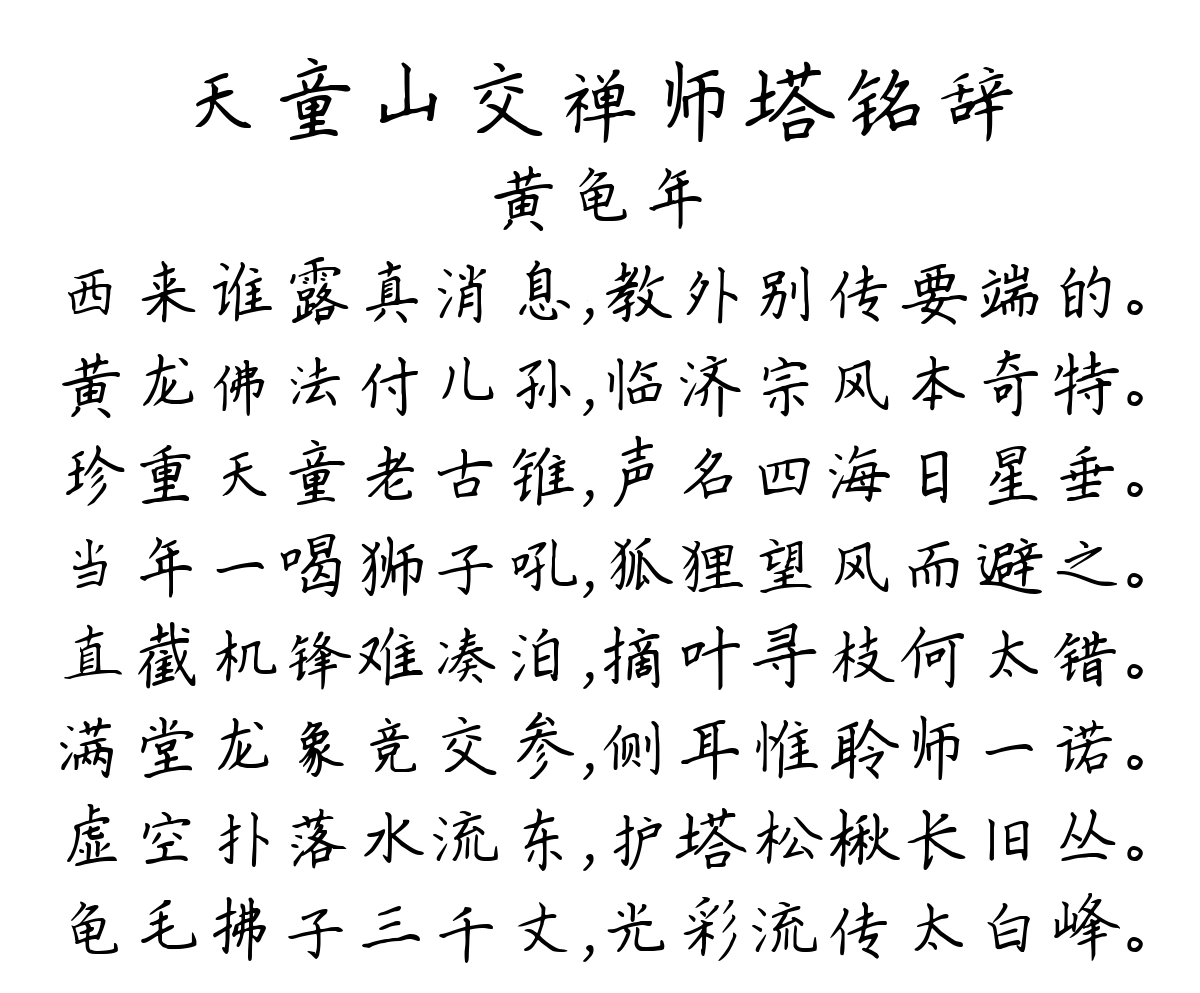 天童山交禅师塔铭辞
黄龟年
西来谁露真消息,教外别传要端的。
黄龙佛法付儿孙,临济宗风本奇特。
珍重天童老古锥,声名四海日星垂。
当年一喝狮子吼,狐狸望风而避之。
直截机锋难凑泊,摘叶寻枝何太错。
满堂龙象竞交参,侧耳惟聆师一诺。
虚空扑落水流东,护塔松楸长旧丛。
龟毛拂子三千丈,光彩流传太白峰。